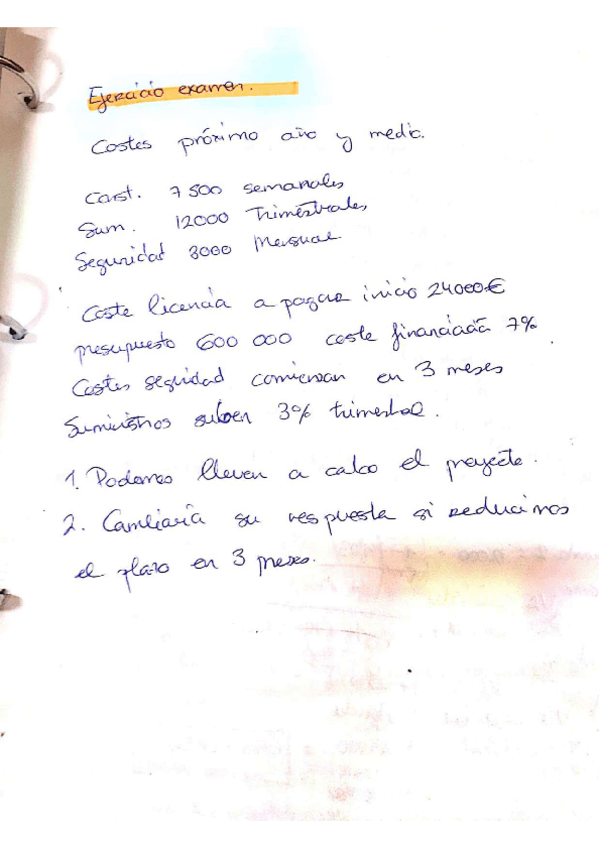 Ejercicio examen.
Costes próximo año y medio.
Const. 7 500 semanales
Sum. 12000 Trimestrales
Seguridad 3000 Mensual
Coste licencia a pagar inicio 24000€
presupuesto 600 000 coste financiación 7%
Costes seguridad comienzan en 3 meses
Suministros suben 3% trimestral.
1. Podemos lleven a cabo el proyecto.
2. Cambiaría su respuesta si reducimos
el plazo en 3 meses.